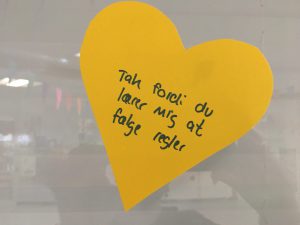 Tak fordi du
lærer mig at
følge regler